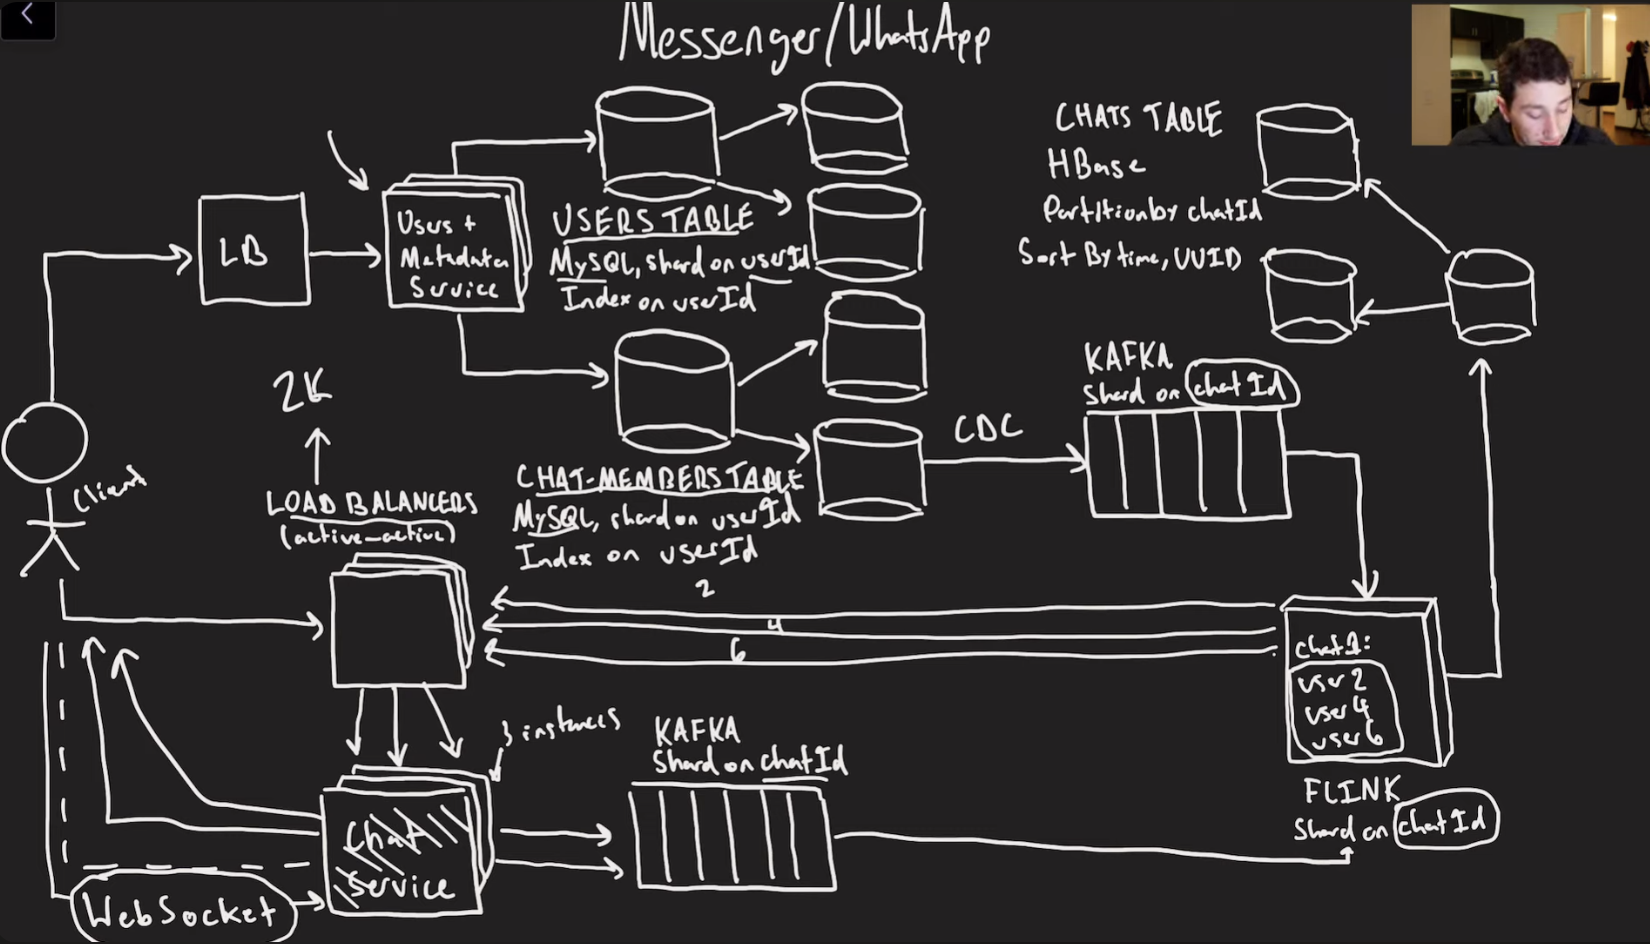 Messenger/WhatsApp
CHATS TABLE
HBase
Partition by chatId
Sort By time, UUID
LB
Users +
Metadata
Service
USERS TABLE
MySQL, shard on userId
Index on userId
KAFKA
Shard on chatId
2K
CDC
Client
LOAD BALANCERS
(active-active)
CHAT-MEMBERS TABLE
MySQL, shard on userId
Index on userId
2
4
6
chat 1:
user 2
user 4
user 6
3 instances
KAFKA
Shard on chatId
FLINK
Shard on chatId
Chat
Service
WebSocket